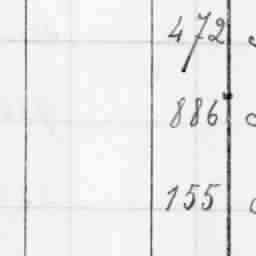 472
886
155